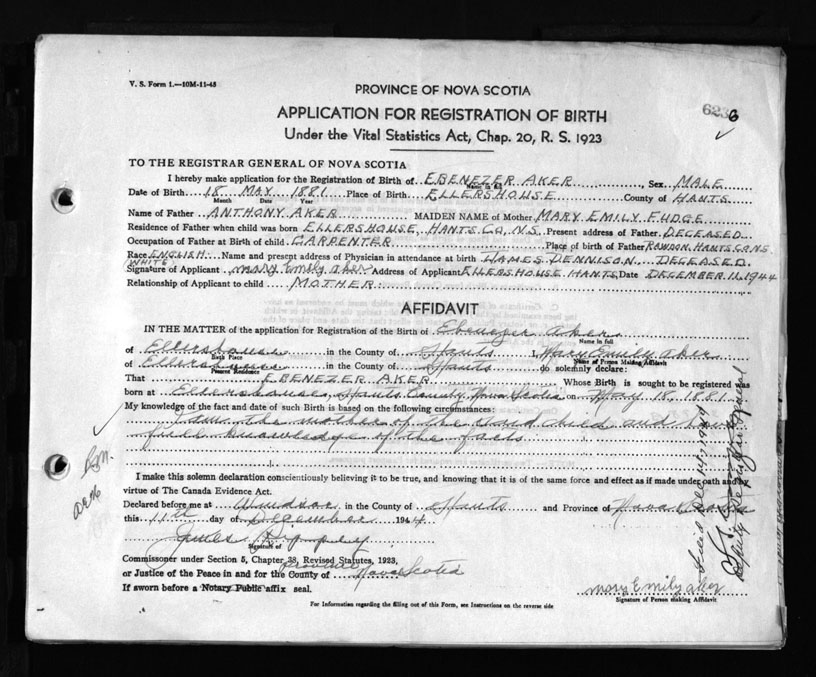 V. S. Form 1.—10M-11-43
PROVINCE OF NOVA SCOTIA
6236
APPLICATION FOR REGISTRATION OF BIRTH
Under the Vital Statistics Act, Chap. 20, R. S. 1923
TO THE REGISTRAR GENERAL OF NOVA SCOTIA
I hereby make application for the Registration of Birth of EBENEZER AKER, Sex MALE
Name in full
Date of Birth 18 MAY 1881 Place of Birth ELLERSHOUSE County of HANTS
Month Date Year
Name of Father ANTHONY AKER MAIDEN NAME of Mother MARY EMILY FUDGE
Residence of Father when child was born ELLERSHOUSE, HANTS CO, N.S. Present address of Father DECEASED
Occupation of Father at Birth of child CARPENTER Place of birth of Father RAWDON, HANTS CO. N.S.
Race ENGLISH Name and present address of Physician in attendance at birth JAMES DENNISON DECEASED
WHITE
Signature of Applicant Mary Emily Aker Address of Applicant ELLERSHOUSE HANTS, Date DECEMBER 11, 1944
Relationship of Applicant to child MOTHER
AFFIDAVIT
IN THE MATTER of the application for Registration of the Birth of Ebenezer Aker
Name in full
of Ellershouse in the County of Hants I, Mary Emily Aker
Birth Place Name of Person Making Affidavit
of Ellershouse in the County of Hants do solemnly declare:
Present Residence
That EBENEZER AKER Whose Birth is sought to be registered was
born at Ellershouse, Hants County, Nova Scotia on May 18, 1881
My knowledge of the fact and date of such Birth is based on the following circumstances:
I am the mother of the said child and have
full knowledge of the facts
I make this solemn declaration conscientiously believing it to be true, and knowing that it is of the same force and effect as if made under oath and by
virtue of The Canada Evidence Act.
Declared before me at Windsor in the County of Hants and Province of Nova Scotia
this 11th day of December 1944
James
Signature of
Commissoner under Section 5, Chapter 38, Revised Statutes, 1923,
Province
or Justice of the Peace in and for the County of Nova Scotia
If sworn before a Notary Public affix seal.
Mary Emily Aker
Signature of Person making Affidavit
For Information regarding the filling out of this Form, see Instructions on the reverse side
Dec 14, 1944
Deputy Registrar General